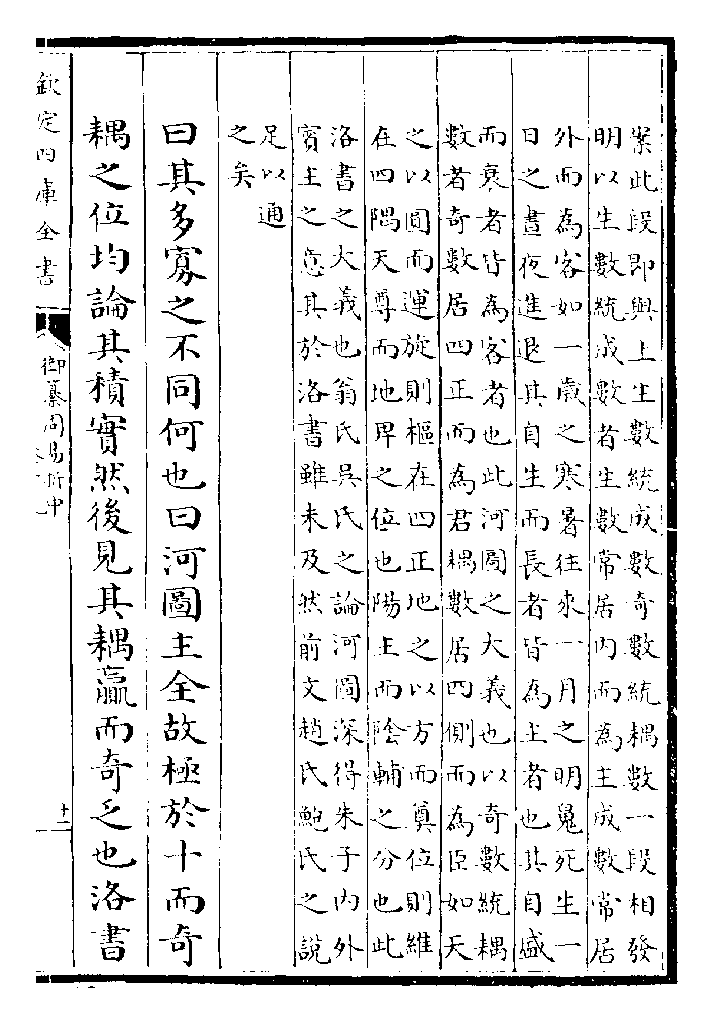 案此段即與上生數統成數奇數統耦數一段相發
明以生數統成數者生數常居内而為主成數常居
外而為客如一歲之寒暑往來一月之明魄死生一
日之晝夜進退其自生而長者皆為主者也其自盛
而衰者皆為客者也此河圖之大義也以奇數統耦
數者奇數居四正而為君耦數居四側而為臣如天
之以圓而運旋則樞在四正地之以方而奠位則維
在四隅天尊而地卑之位也陽主而陰輔之分也此
洛書之大義也翁氏吳氏之論河圖深得朱子内外
賓主之意其於洛書雖未及然前文趙氏鮑氏之說
足以通
之矣
曰其多寡之不同何也曰河圖主全故極於十而奇
耦之位均論其積實然後見其耦贏而奇乏也洛書
欽定四庫全書
御纂周易折中
十一